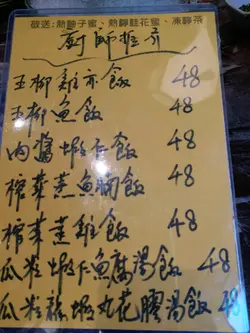 敬送:熱柚子蜜、熱檸桂花蜜、凍檸茶
廚師推介
玉柳雞亦飯 48
玉柳魚飯 48
肉醬蝦仁飯 48
榨菜蒸魚腩飯 48
榨菜蒸雞飯 48
瓜粒蝦卜魚腐湯飯 48
瓜粒蝦丸花膠湯飯 48